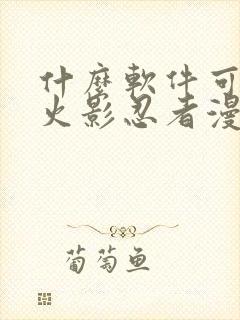 什麼軟件可
火影忍者漫
葡萄鱼